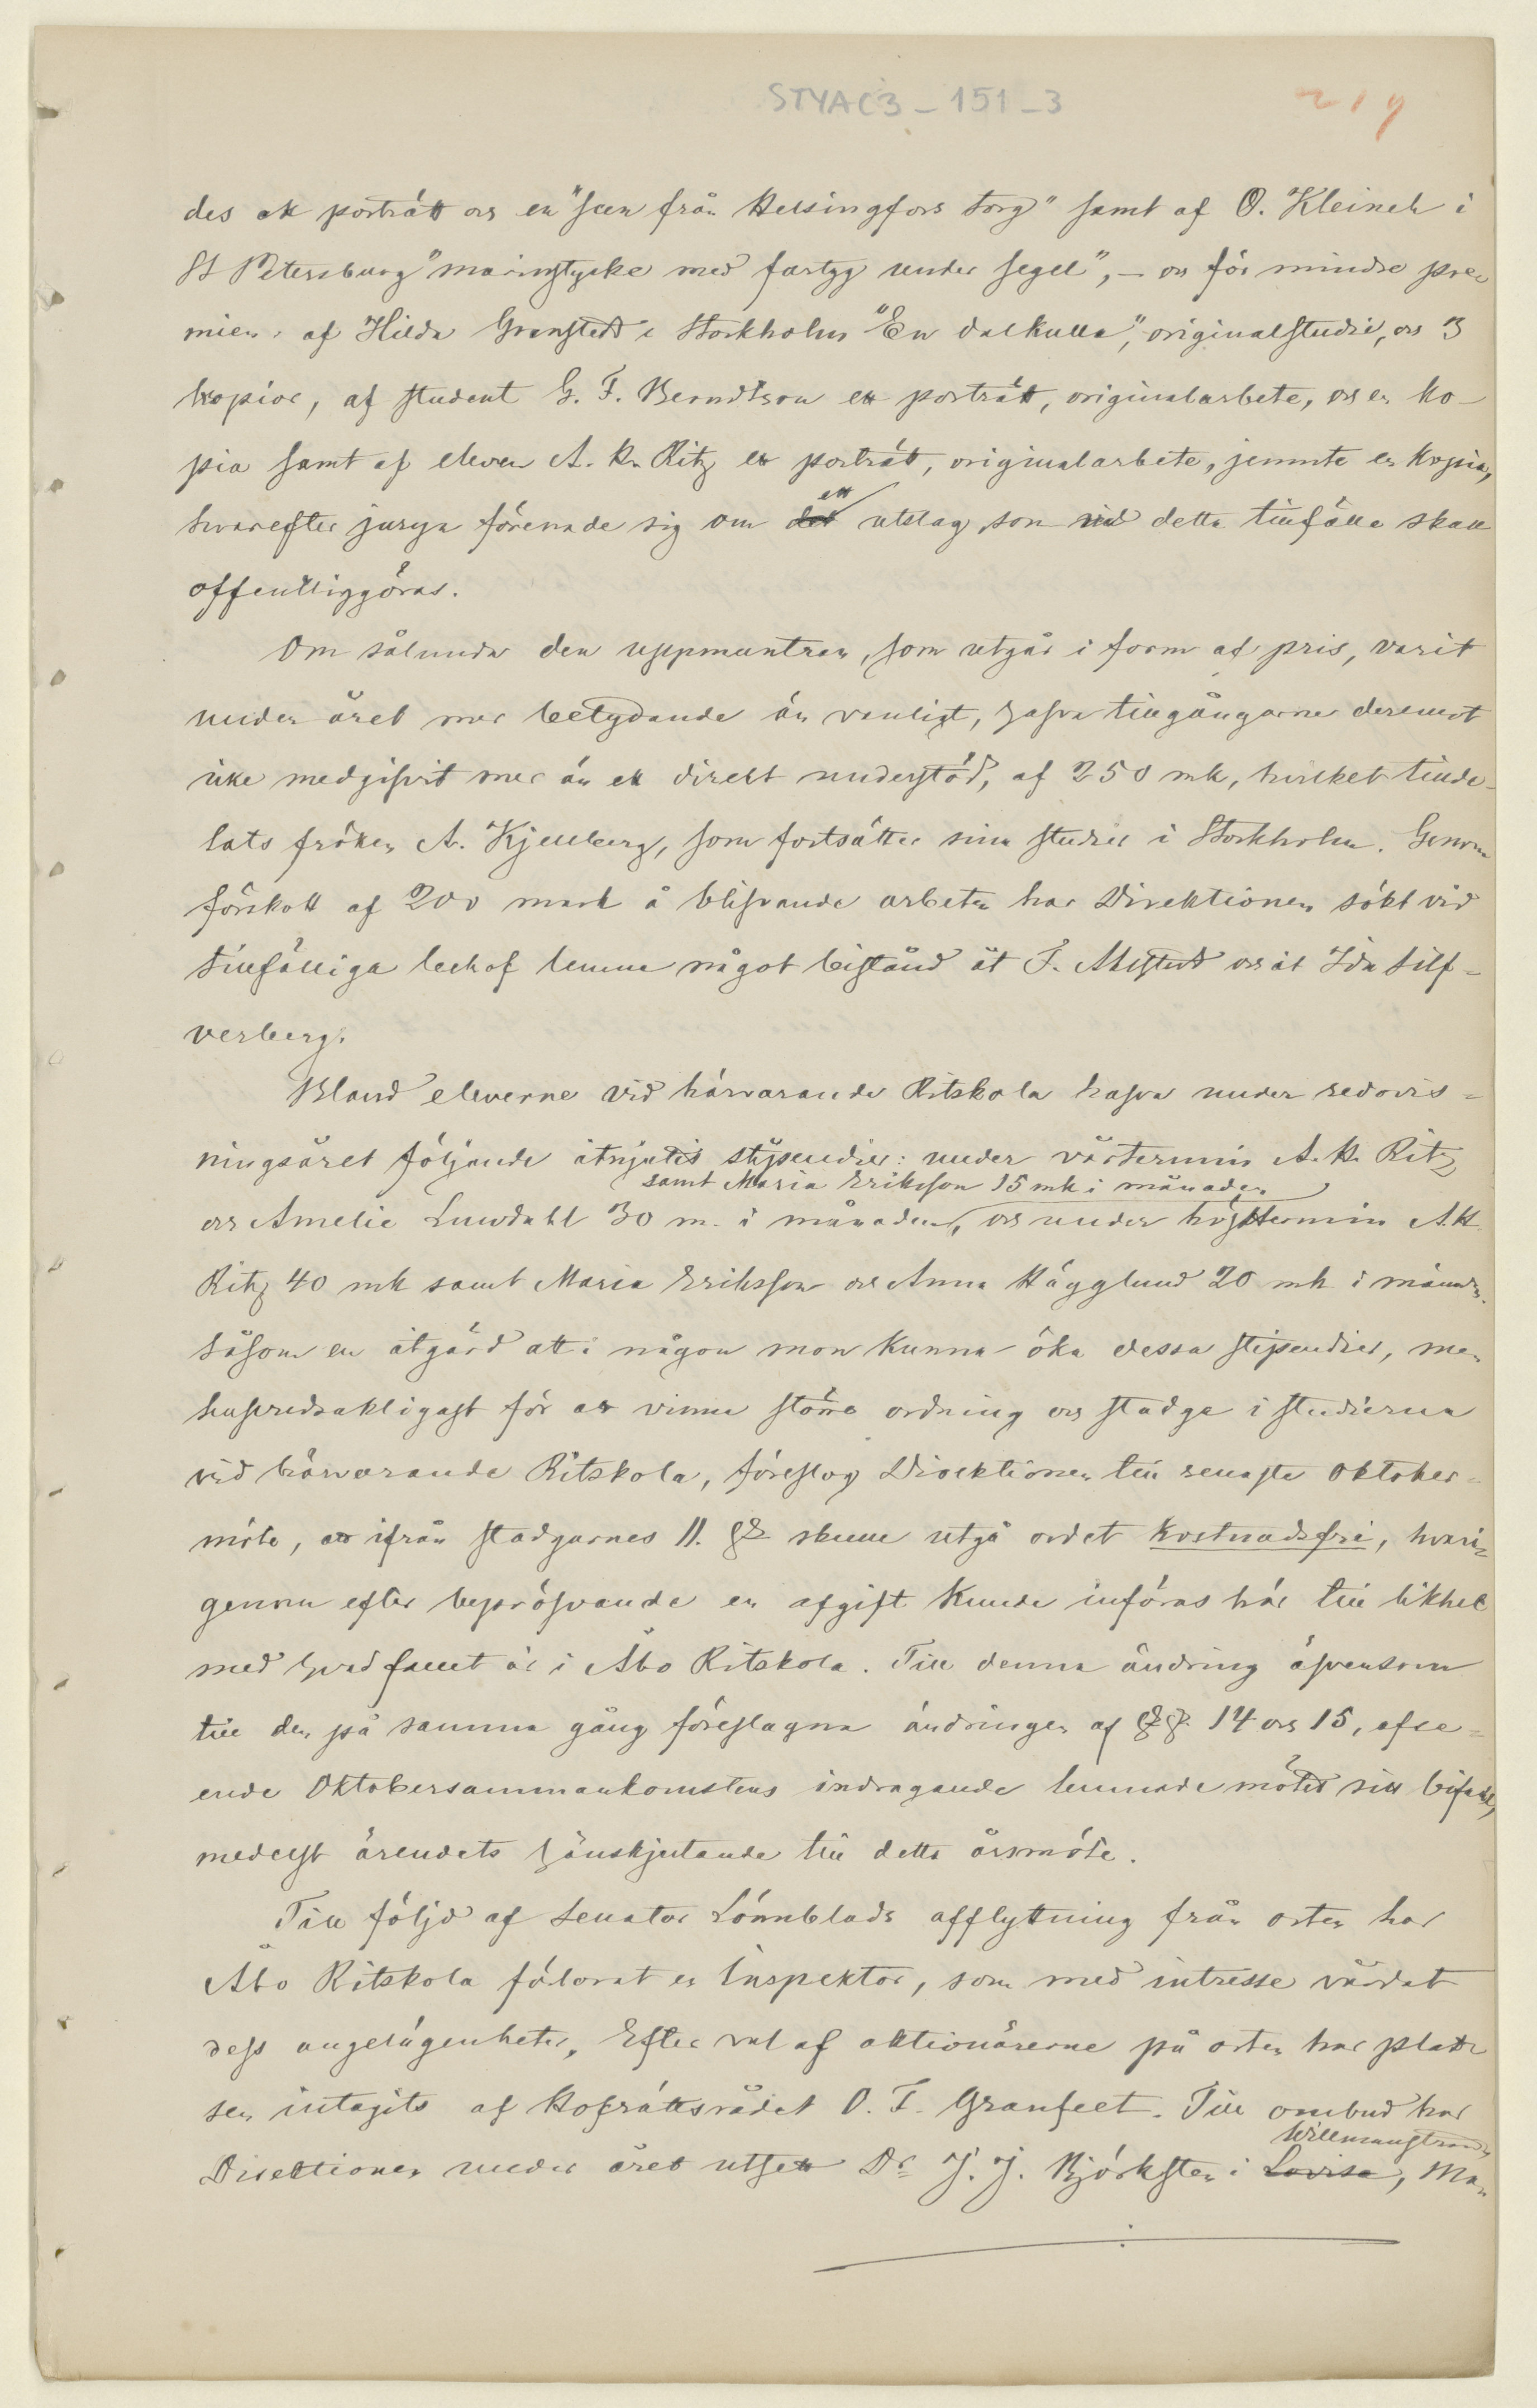 STYAC3-151-3
219
des ett porträtt och en "scen från Helsingfors torg" samt af O. Kleineh i
St Petersburg "marinstycke med fartyg under segel", — och för mindre pre-
mier af Hilda Granstedt i Stockholm "En dalkulla", originalstudie, och 3
kopior, af student G. F. Berndtson ett porträtt, originalarbete, och en ko-
pia samt af eleven A. K. Ritz ett porträtt, originalarbete, jemnte en kopia,
ett
hvarefter juryn förenade sig om det utslag, som vid detta tillfälle skall
offentliggöras.
Om sålunda den uppmuntran, som utgår i form af pris, varit
under året mer betydande än vanligt, hafva tillgångarne deremot
icke medgifvit mer än ett direkt understöd, af 250 mk, hvilket tillde-
lats fröken A. Kjellberg, som fortsätter sina studier i Stockholm. Genom
förskott af 200 mark å blifvande arbeten har Direktionen sökt vid
tillfälliga behof lemna något bistånd åt F. Ahlstedt och åt Ida Silf-
verberg.
Bland eleverne vid härvarande Ritskola hafva under redovis-
ningsåret följande åtnjutit stipendier: under vårtermin A. K. Ritz
samt Maria Eriksson 15 mk i månaden
och Amelie Lundahl 30 m. i månaden, och under hösttermin A. K.
Ritz 40 mk samt Maria Eriksson och Anna Hägglund 20 mk i månaden.
Såsom en åtgärd att i någon mon kunna öka dessa stipendier, men
hufvudsakligast för att vinna större ordning och stadga i studierna
vid härvarande Ritskola, föreslog Direktionen till senaste Oktober-
möte, att ifrån stadgarnes 11. § skulle utgå ordet kostnadsfri, hvari-
genom efter bepröfvande en afgift kunde införas här till likhet
med hvad fallet är i Åbo Ritskola. Till denna ändring äfvensom
till den på samma gång föreslagna ändringen af §§. 14 och 15, afse-
ende Oktobersammankomstens indragande lemnade mötet sitt bifall,
medelst ärendets hänskjutande till detta årsmöte.
Till följd af Senator Lönnblads afflyttning från orten har
Åbo Ritskola förlorat en Inspektor, som med intresse vårdat
dess angelägenheter. Efter val af aktionärerne på orten har platt-
sen intagits af Hofrättsrådet O. F. Granfelt. Till ombud har
Willmanstrand
Direktionen under året utsett Dr J. J. Björksten i Lovisa, Ma-